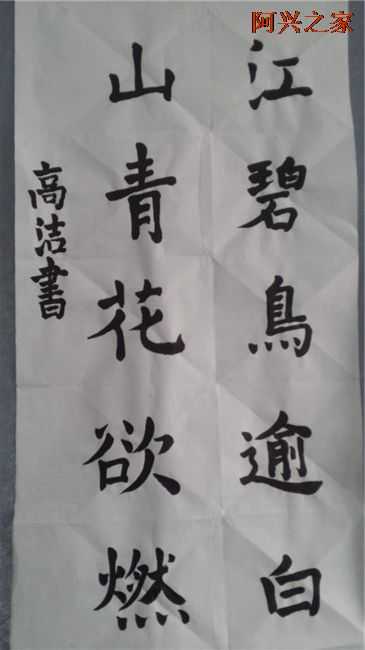 阿兴之家
江碧鳥逾白
山青花欲燃
高洁書